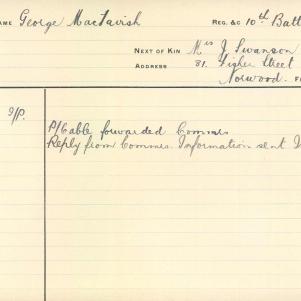 NAME George MacTavish REG. &c 10th Batt
NEXT OF KIN Mrs J. Swanson
ADDRESS 81. Fisher Street
Norwood.
P/Cable forwarded Commrs
Reply from Commrs. Information sent